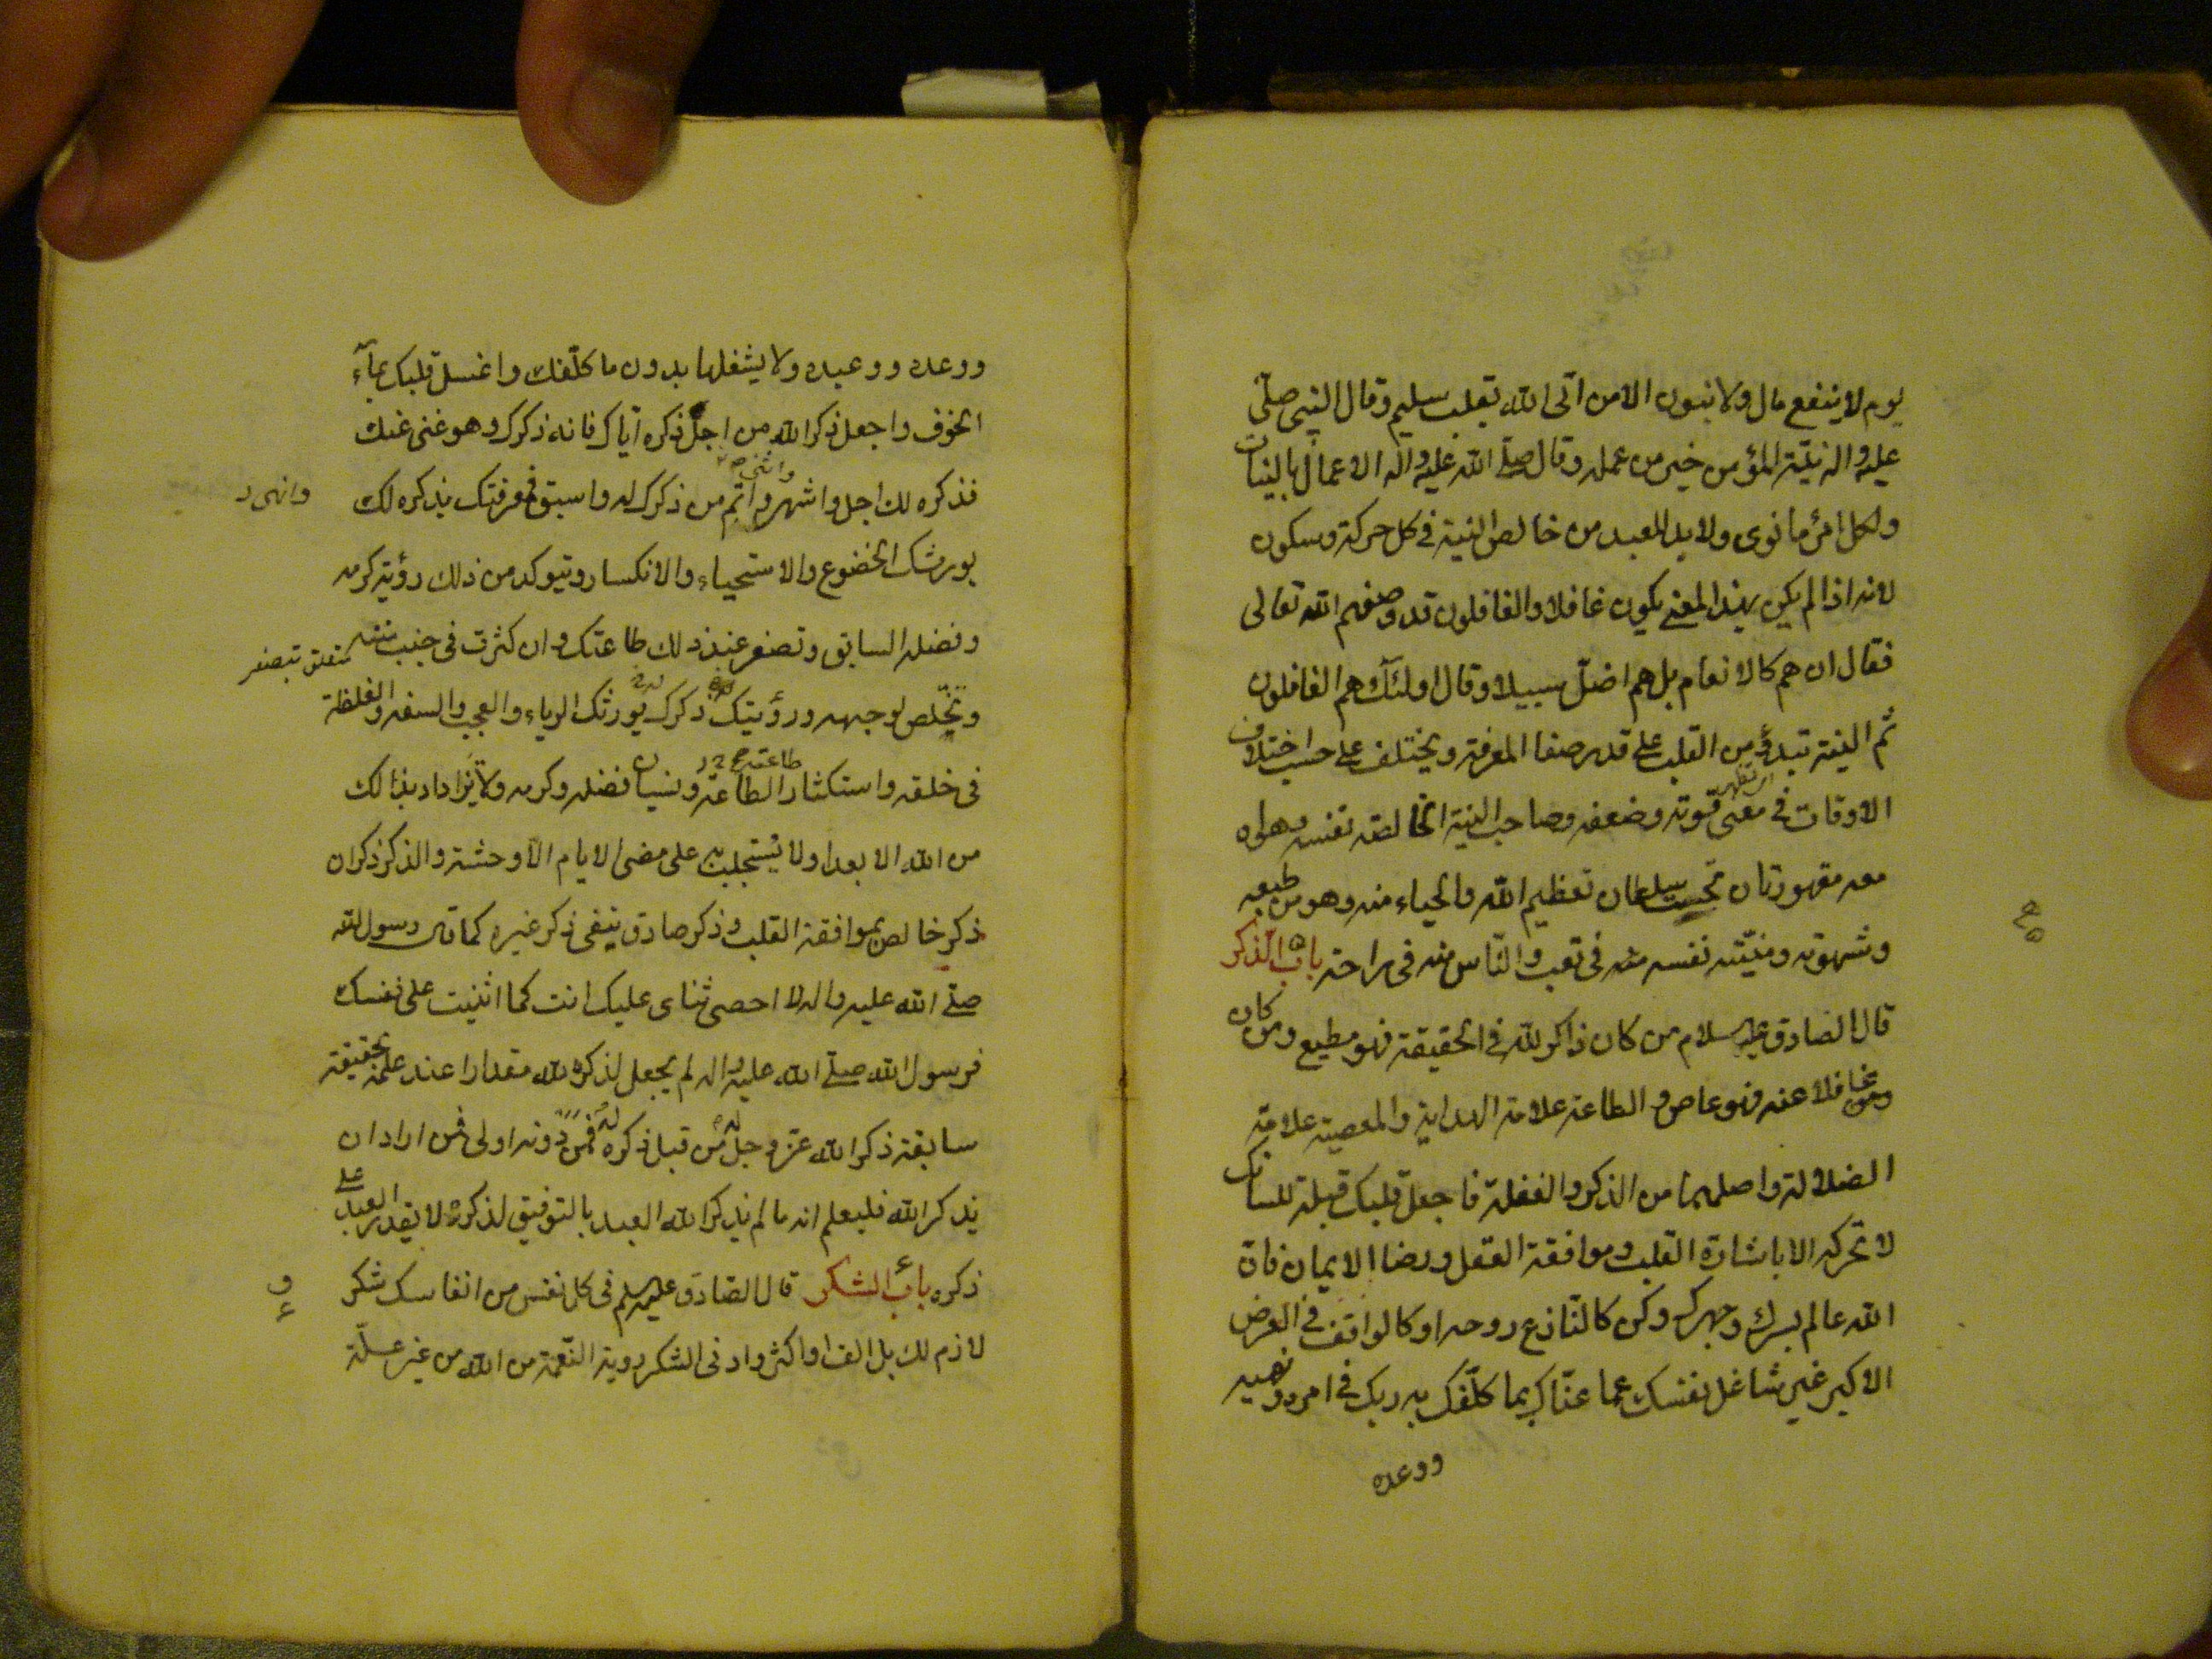 يوم لا ينفع مال ولا بنون الا من اتى الله بقلب سليم وقال النبي صلّى
عليه واله نيّة المؤمن خير من عمله وقال صلى الله عليه واله الاعمال بالنيات
ولكل امرئ ما نوى ولا بد للعبد من خالص النية في كل حركة وسكون
لانه اذا لم يكن بهذا المعنى يكون غافلا والغافلون قد وصفهم الله تعالى
فقال ان هم كالانعام بل هم اضلّ سبيلا وقال اولئك هم الغافلون
ثم النية تبدؤ من القلب على قدر صفا المعرفة ويختلف على حسب اختلاف
الاوقات في معنى قوته وضعفه وصاحب النية الخالصة نفسه وهواه
معه مقهورتان تحت سلطان تعظيم الله والحياء منه وهو من طبعه
وشهوته ومنيّته نفسه منه في تعب والنّاس منه في راحة باب الذكر
قال الصادق عليه السلام من كان ذاكر لله في الحقيقة فهو مطيع ومن كان
غافلا عنه فهو عاص والطاعة علامة الهداية والمعصية علامة
الضلالة واصلهما من الذكر والغفلة فاجعل قلبك قبلة للسانك
لا تحركه الا باشارة القلب وموافقة العقل ورضا الايمان فان
الله عالم بسرك وجهرك وكن كالنّازع روحه او كالواقف في العرض
الاكبر غير شاغل نفسك عما عنّاك بما كلّفك به ربك في امره ونهيه
ووعده
ووعده ووعيده ولا يشغلها بدون ما كلّفك واغسل قلبك بمآء
الخوف واجعل ذكر الله من اجل ذكره اياك فانه ذكرك وهو غنى عنك
فذكره لك اجل واشهر واتم من ذكرك له واسبق فمعرفتك بذكره لك
وانهى ر
يورثك الخضوع والاستحياء والانكسار ويتوكد من ذلك رؤية كرمه
وفضله السابق وتصغر عند ذلك طاعتك وان كثرت في جنب مننه
متعلق بتصغر
وتخلّص لوجهه ورؤيتك ذكرك يورثك الرياء والعجب والسفه والغلظة
في خلقه واستكثار الطاعة ونسيان فضله وكرمه ولا يزداد بذالك
من الله الا بعدا ولا يستجلب به على مضى الايام الّا وحشة والذكر ذكران
ذكر خالص بموافقة القلب وذكر صادق ينفى ذكر غيره كما قال رسول الله
صلى الله عليه واله لا احصى ثناى عليك انت كما اثنيت على نفسك
فرسول الله صلى الله عليه واله لم يجعل لذكره لله مقدارا عند علمه بحقيقة
سابقة ذكر الله عزّ وجل من قبل ذكره له فمن دونه اولى فمن اراد ان
يذكر الله فليعلم انه ما لم يذكر الله العبد بالتوفيق لذكره لا يقدر العبد على
ذكره باب الشكر قال الصادق عليه السلم في كل نفس من انفاسك شكر
لازم لك بل الف او اكثر وادنى الشكر روية النّعمة من الله من غير علّة